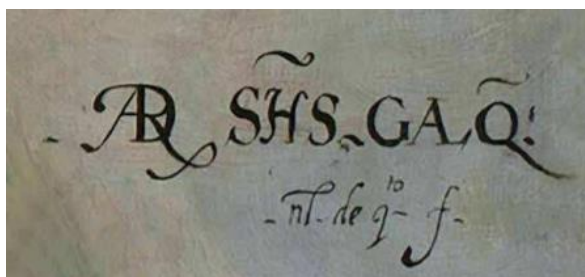 - ADR SH̃S. GALQ̃:
- nl- de qᵗᵒ- f-